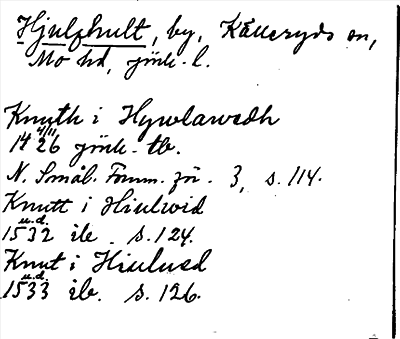 Hjulphult, by, Kålleryds sn,
Mo hd, jönk. l.
Knuth i Hywlawedh
14 4/11 26 jönk. tb.
N. Smål. Fornm. för. 3, s. 114.
Knutt i Hiulwid
u.d.
1532 ib. s. 124.
Knut i Hiulued
u.d.
1533 ib. s. 126.